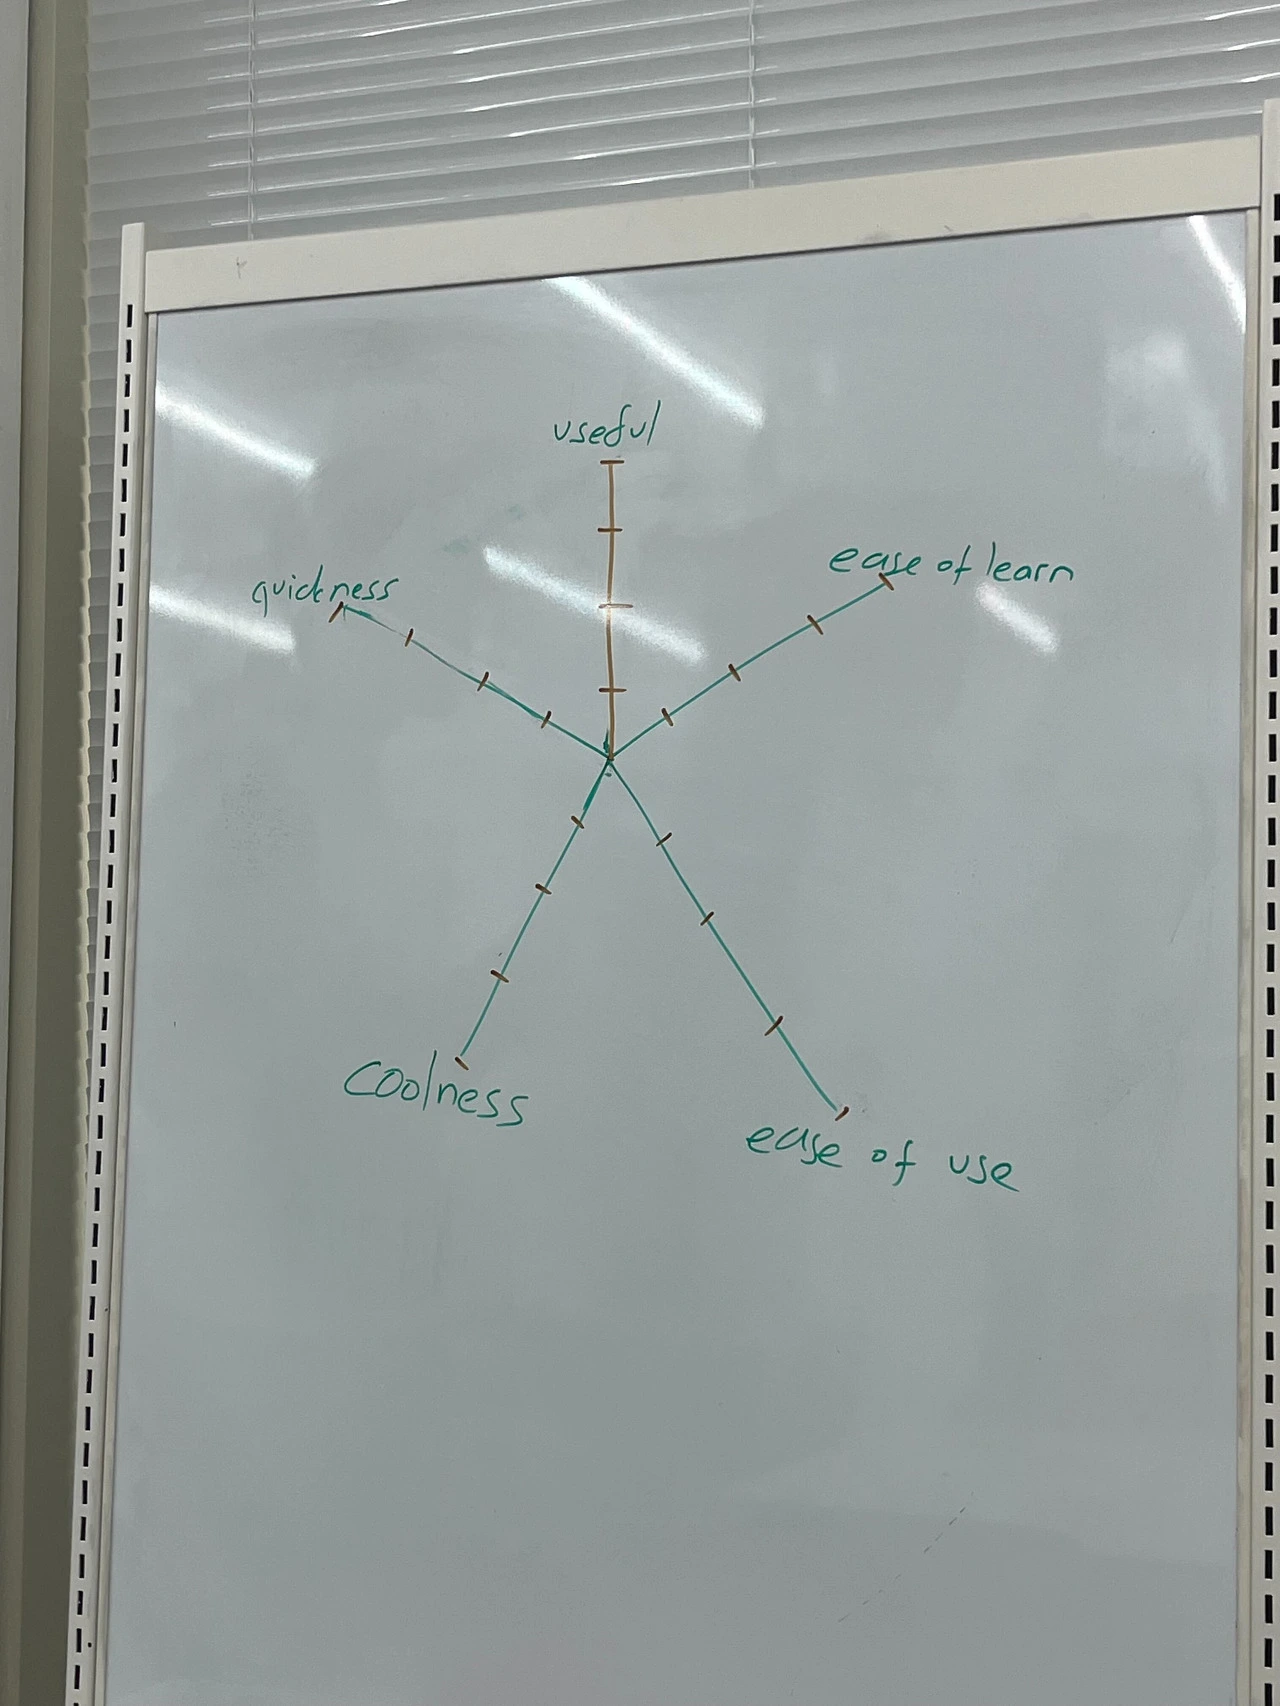 useful
ease of learn
quickness
coolness
ease of use